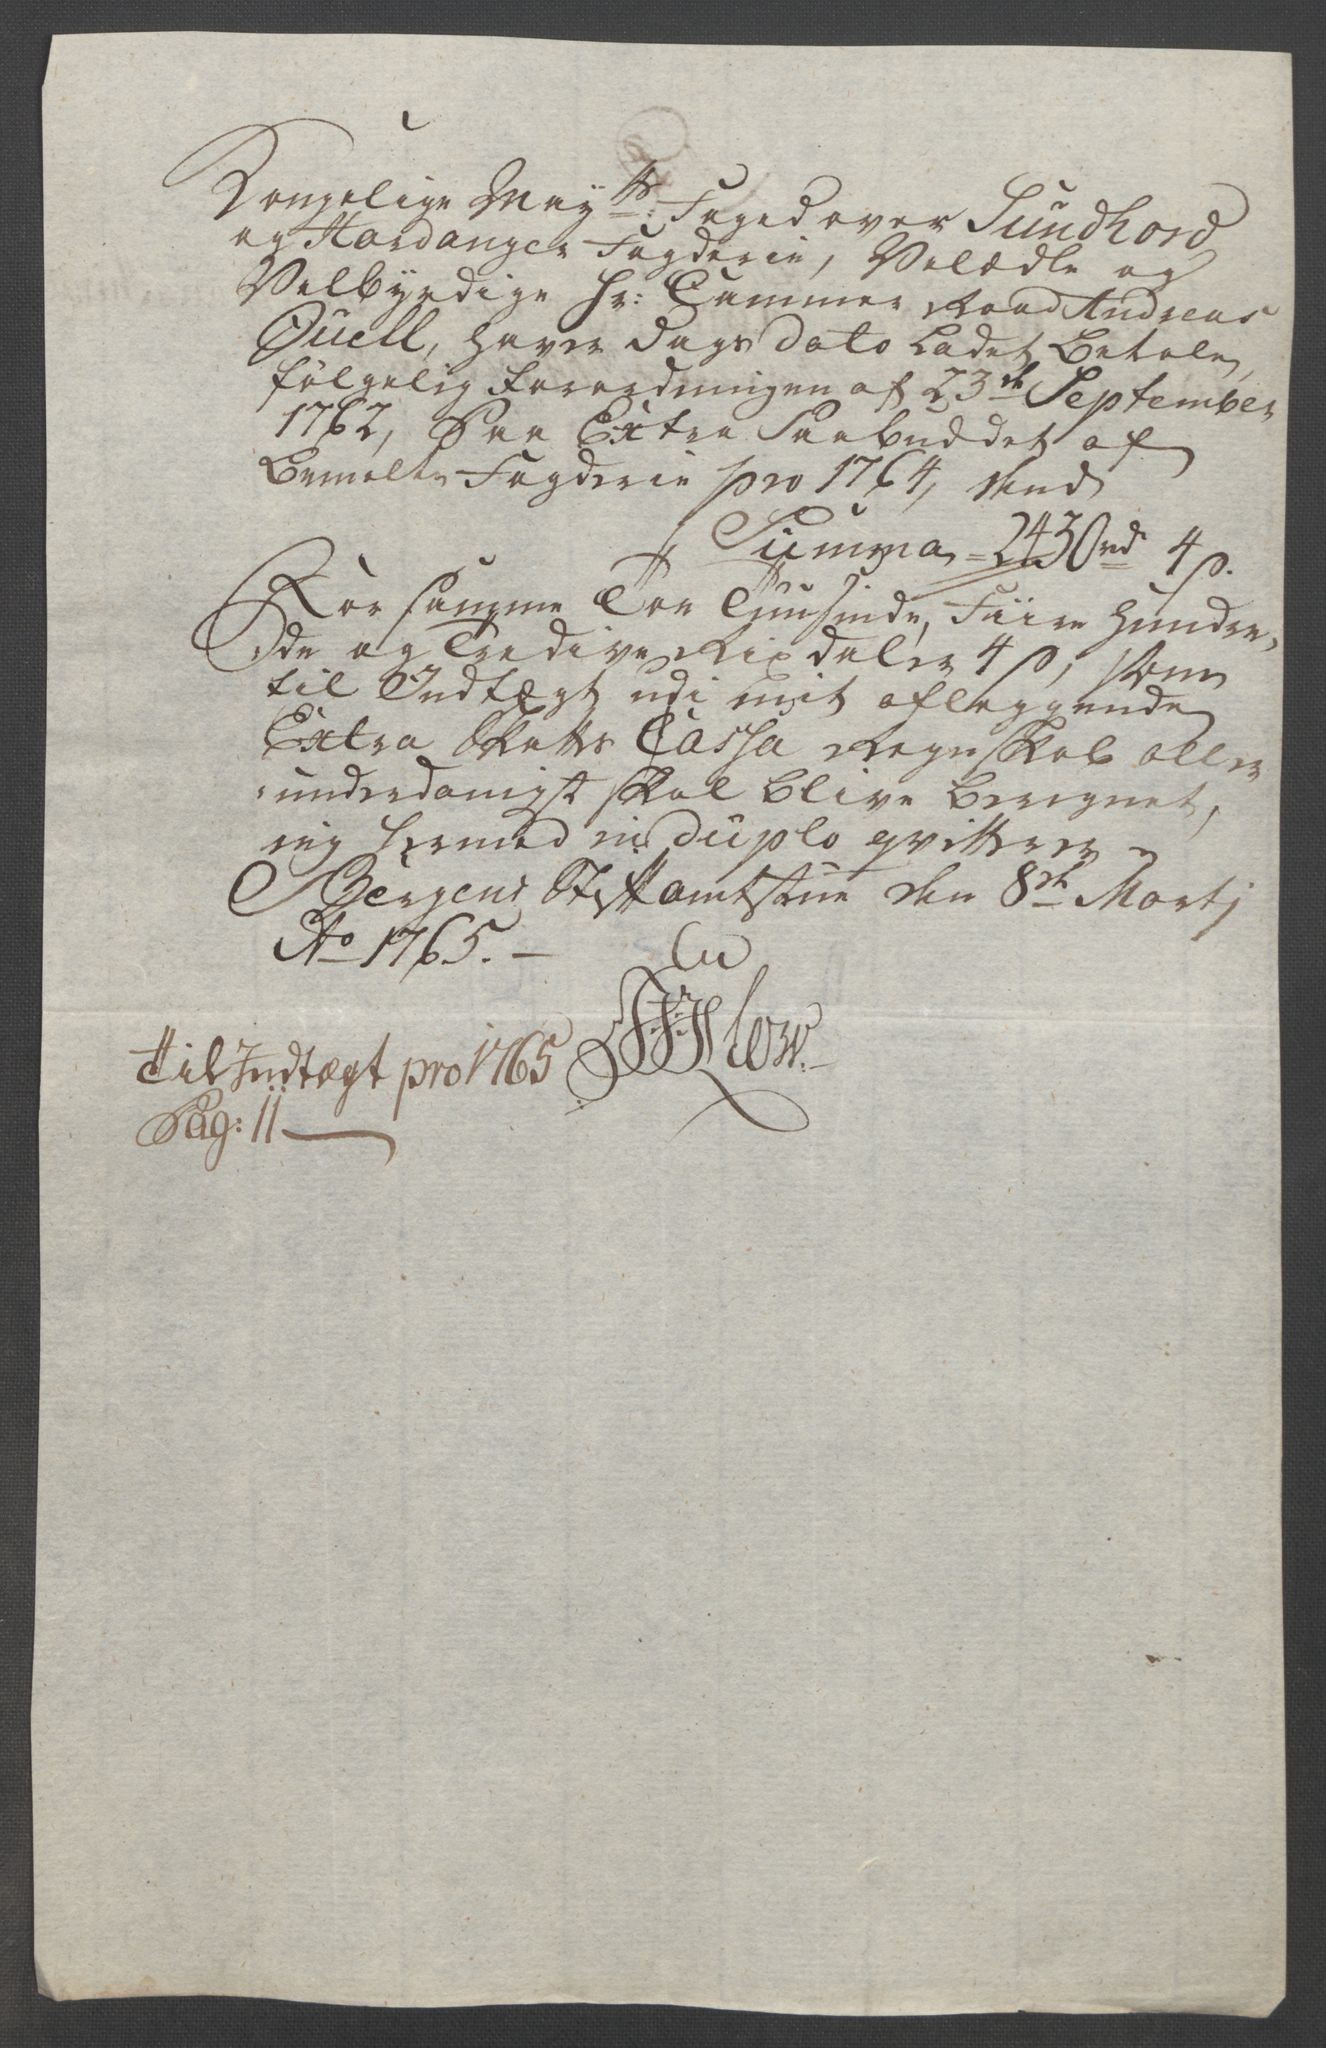 Kongelige Mayts: Foged over Sundhord
og Hardanger Fogderie, Velædle og
Velbyrdige Hr: Cammer Raad Andreas
Juell, haver Dags Dato Ladet Betale,
følgelig Forordningen af 23de September
1762, Paa Extra Paabuddet af
bemelte Fogderie pro 1764, med
Summa = 2430 rd 4 s.
For samme Toe Tusinde, Fiire Hundre,,
de og Tredive Rixdaler 4 s, som
til Indtægt udi mit aflæggende
Extra Skatts Cassa Regnskab aller
underdanigst skal blive beregnet,
ieg hermed in duplo qvitterer
Bergens Stiftamtstue den 8de Martj
Ao 1765. –
Til Indtægt pro 1765
Pag: 11